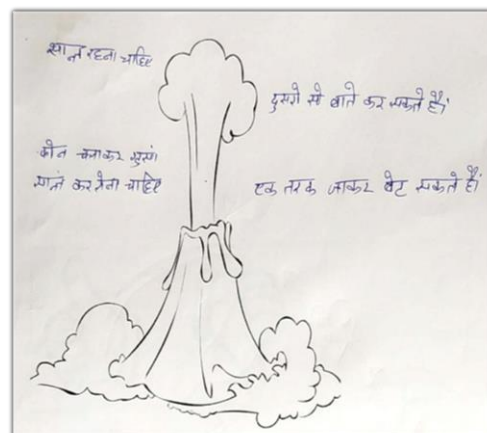 शान्त रहना चाहिए
दुसरो से बाते कर सकते हैं।
शान्त कर लेना चाहिए
एक तरफ जाकर बेट सकते हैं